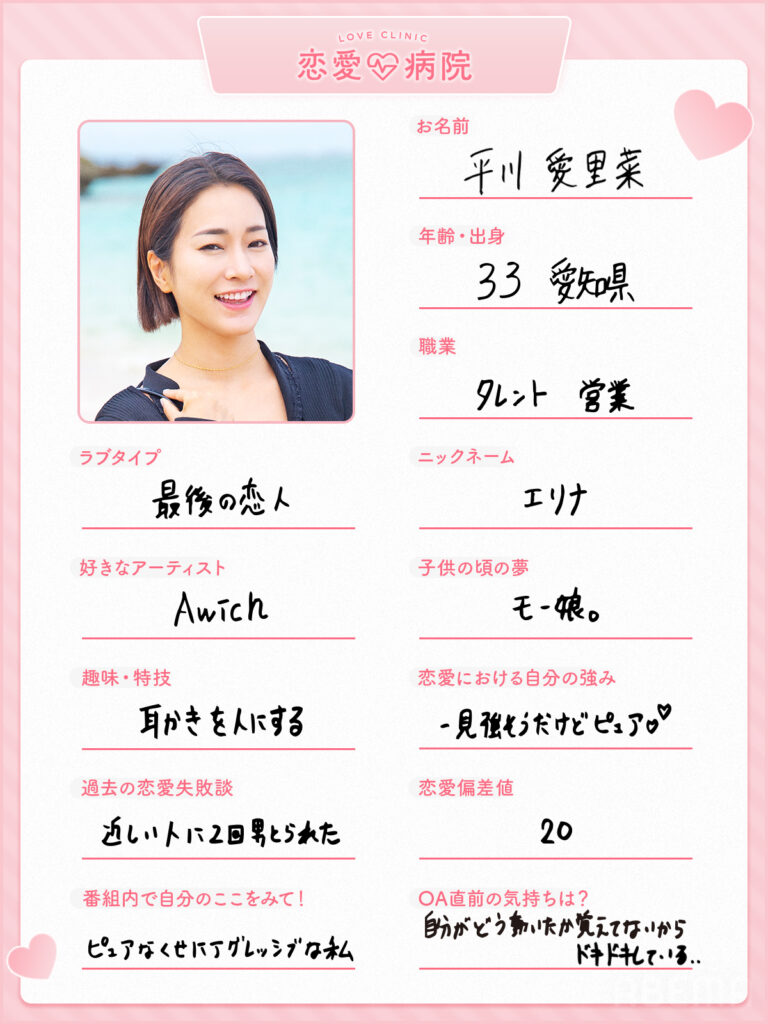 LOVE CLINIC
恋愛病院
お名前
平川 愛里菜
年齢・出身
33 愛知県
職業
タレント 営業
ラブタイプ
最後の恋人
ニックネーム
エリナ
好きなアーティスト
Awich
子供の頃の夢
モー娘。
趣味・特技
耳かきを人にする
恋愛における自分の強み
一見強そうだけどピュア♡♡
過去の恋愛失敗談
近しい人に2回男とられた
恋愛偏差値
20
番組内で自分のここをみて!
ピュアなくせにアグレッシブな私
OA直前の気持ちは?
自分がどう動いたか覚えてないから
ドキドキしている..
ABEMA